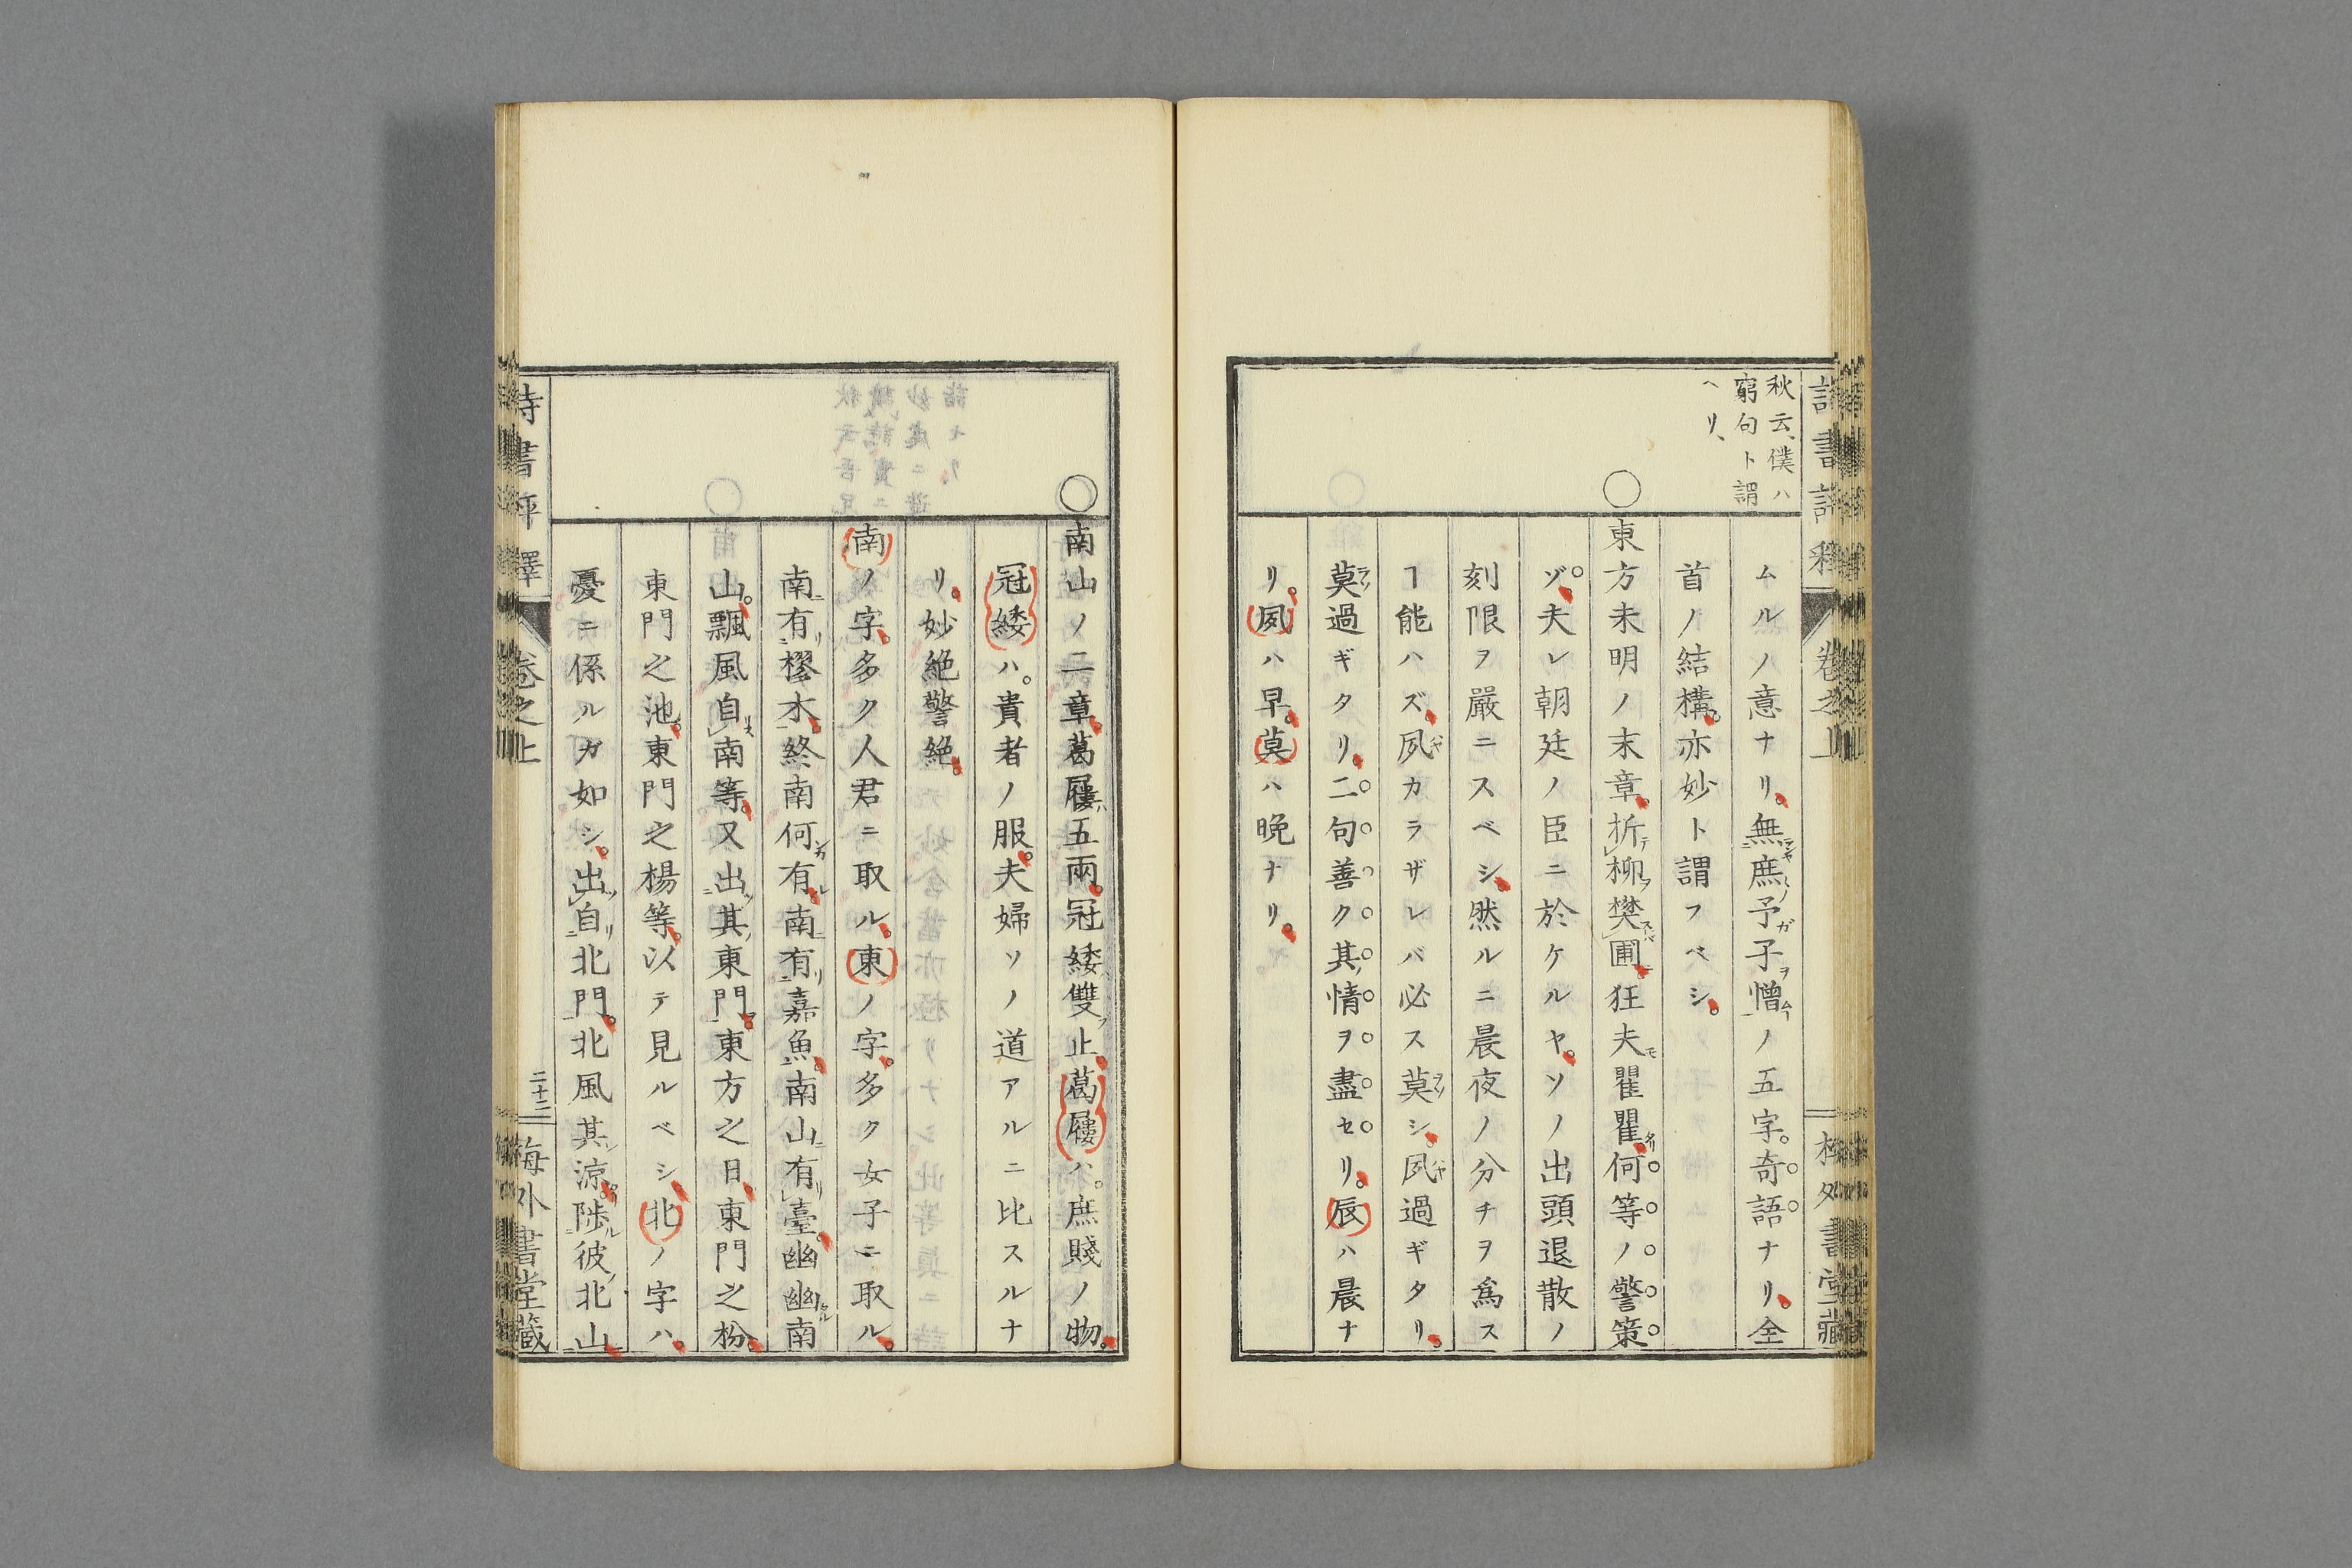 秋云、僕ハ
窮句ト謂
ヘリ、
ムルノ意ナリ。無庶予子憎ノ五字。奇語ナリ。全
首ノ結構。亦妙ト謂フベシ。
○東方未明ノ末章。折柳樊圃。狂夫瞿瞿。何等ノ警策
ゾ。夫レ朝廷ノ臣ニ於ケルヤ。ソノ出頭退散ノ
刻限ヲ嚴ニスベシ。然ルニ晨夜ノ分チヲ爲ス
ヿ能ハズ。夙カラザレバ必ス莫シ。夙過ギタリ。
莫過ギタリ。二句善ク其情ヲ盡セリ。辰ハ晨ナ
リ。夙ハ早。莫ハ晩ナリ。
○南山ノ二章。葛屨五兩。冠緌雙止。葛屨ハ。庶賤ノ物。
冠緌ハ。貴者ノ服。夫婦ソノ道アルニ比スルナ
リ。妙絶警絶。
南ノ字。多ク人君ニ取ル。東ノ字。多ク女子ニ取ル。
南有樛木。終南何有。南有嘉魚。南山有臺。幽幽南
山。飄風自南等。又出其東門。東方之日。東門之枌。
東門之池。東門之楊等。以テ見ルベシ。北ノ字ハ。
憂ニ係ルガ如シ。出自北門。北風其涼。陟彼北山。
詩書評釋
卷之上
二十二
梅外書堂藏